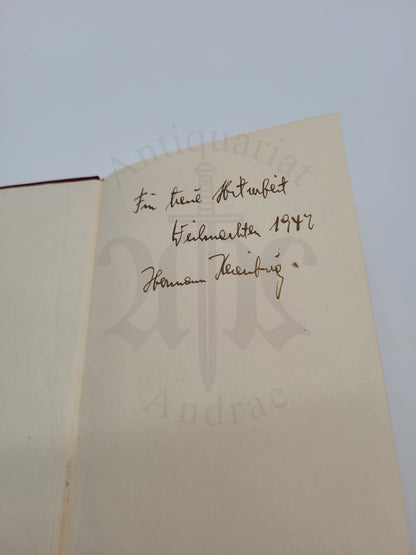 Antiquariat
Für treue Mitarbeit
Weihnachten 1947
Hermann
Andrae